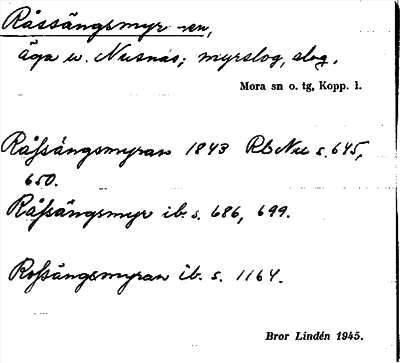 Råssängsmyr -en,
äga w. Nusnäs; myrslog, slog.
Mora sn o. tg, Kopp. l.
Råssängsmyran 1843 Rb Nu s. 645,
650.
Råssängsmyr ib. s. 686, 699.
Rossängsmyran ib. s. 1164.
Bror Lindén 1945.